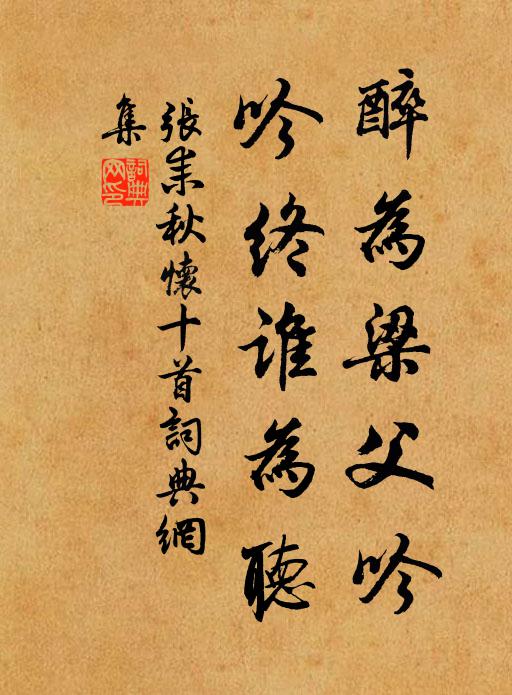 醉為梁父吟
吟終誰為聽
張耒秋懷十首詞典網
集
詞典
网印